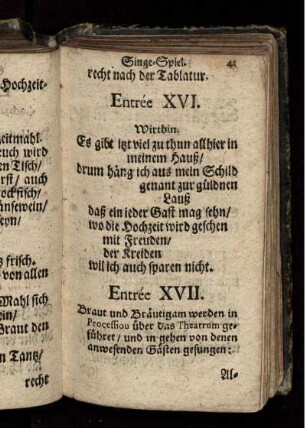 Hochzeit-
eitmahl.
euch wird
en Tisch/
rst/ auch
ockfisch/
änsewein/
eyn/
z frisch.
von allen
Mahl sich
ein/
Braut den
n Tantz/
recht
Singe-Spiel. 41
recht nach der Tablatur.
Entrée XVI.
Wirthin.
Es gibt itzt viel zu thun allhier in
meinem Hauß/
drum häng ich aus mein Schild
genant zur güldnen
Lauß
daß ein ieder Gast mag sehn/
wo die Hochzeit wird geschen
mit Freuden/
der Kreiden
wil ich auch sparen nicht.
Entrée XVII.
Braut und Bräutigam werden in
Procession über das Theatrum ge-
führet/ und in gehen von denen
anwesenden Gästen gesungen:
Al-